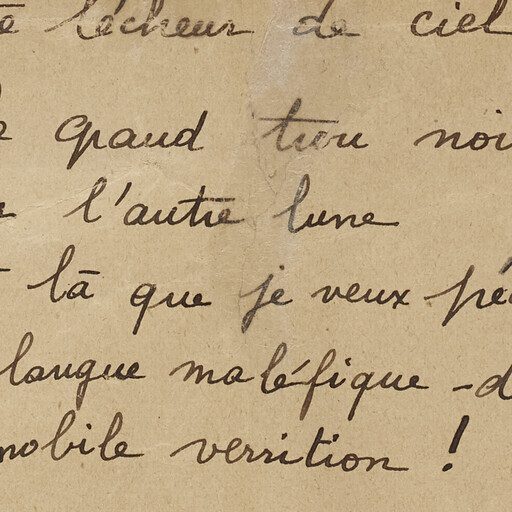 lécheur de ciel
grand trou noi
l'autre lune
là que je veux pé
langue maléfique - d
mobile verrition !